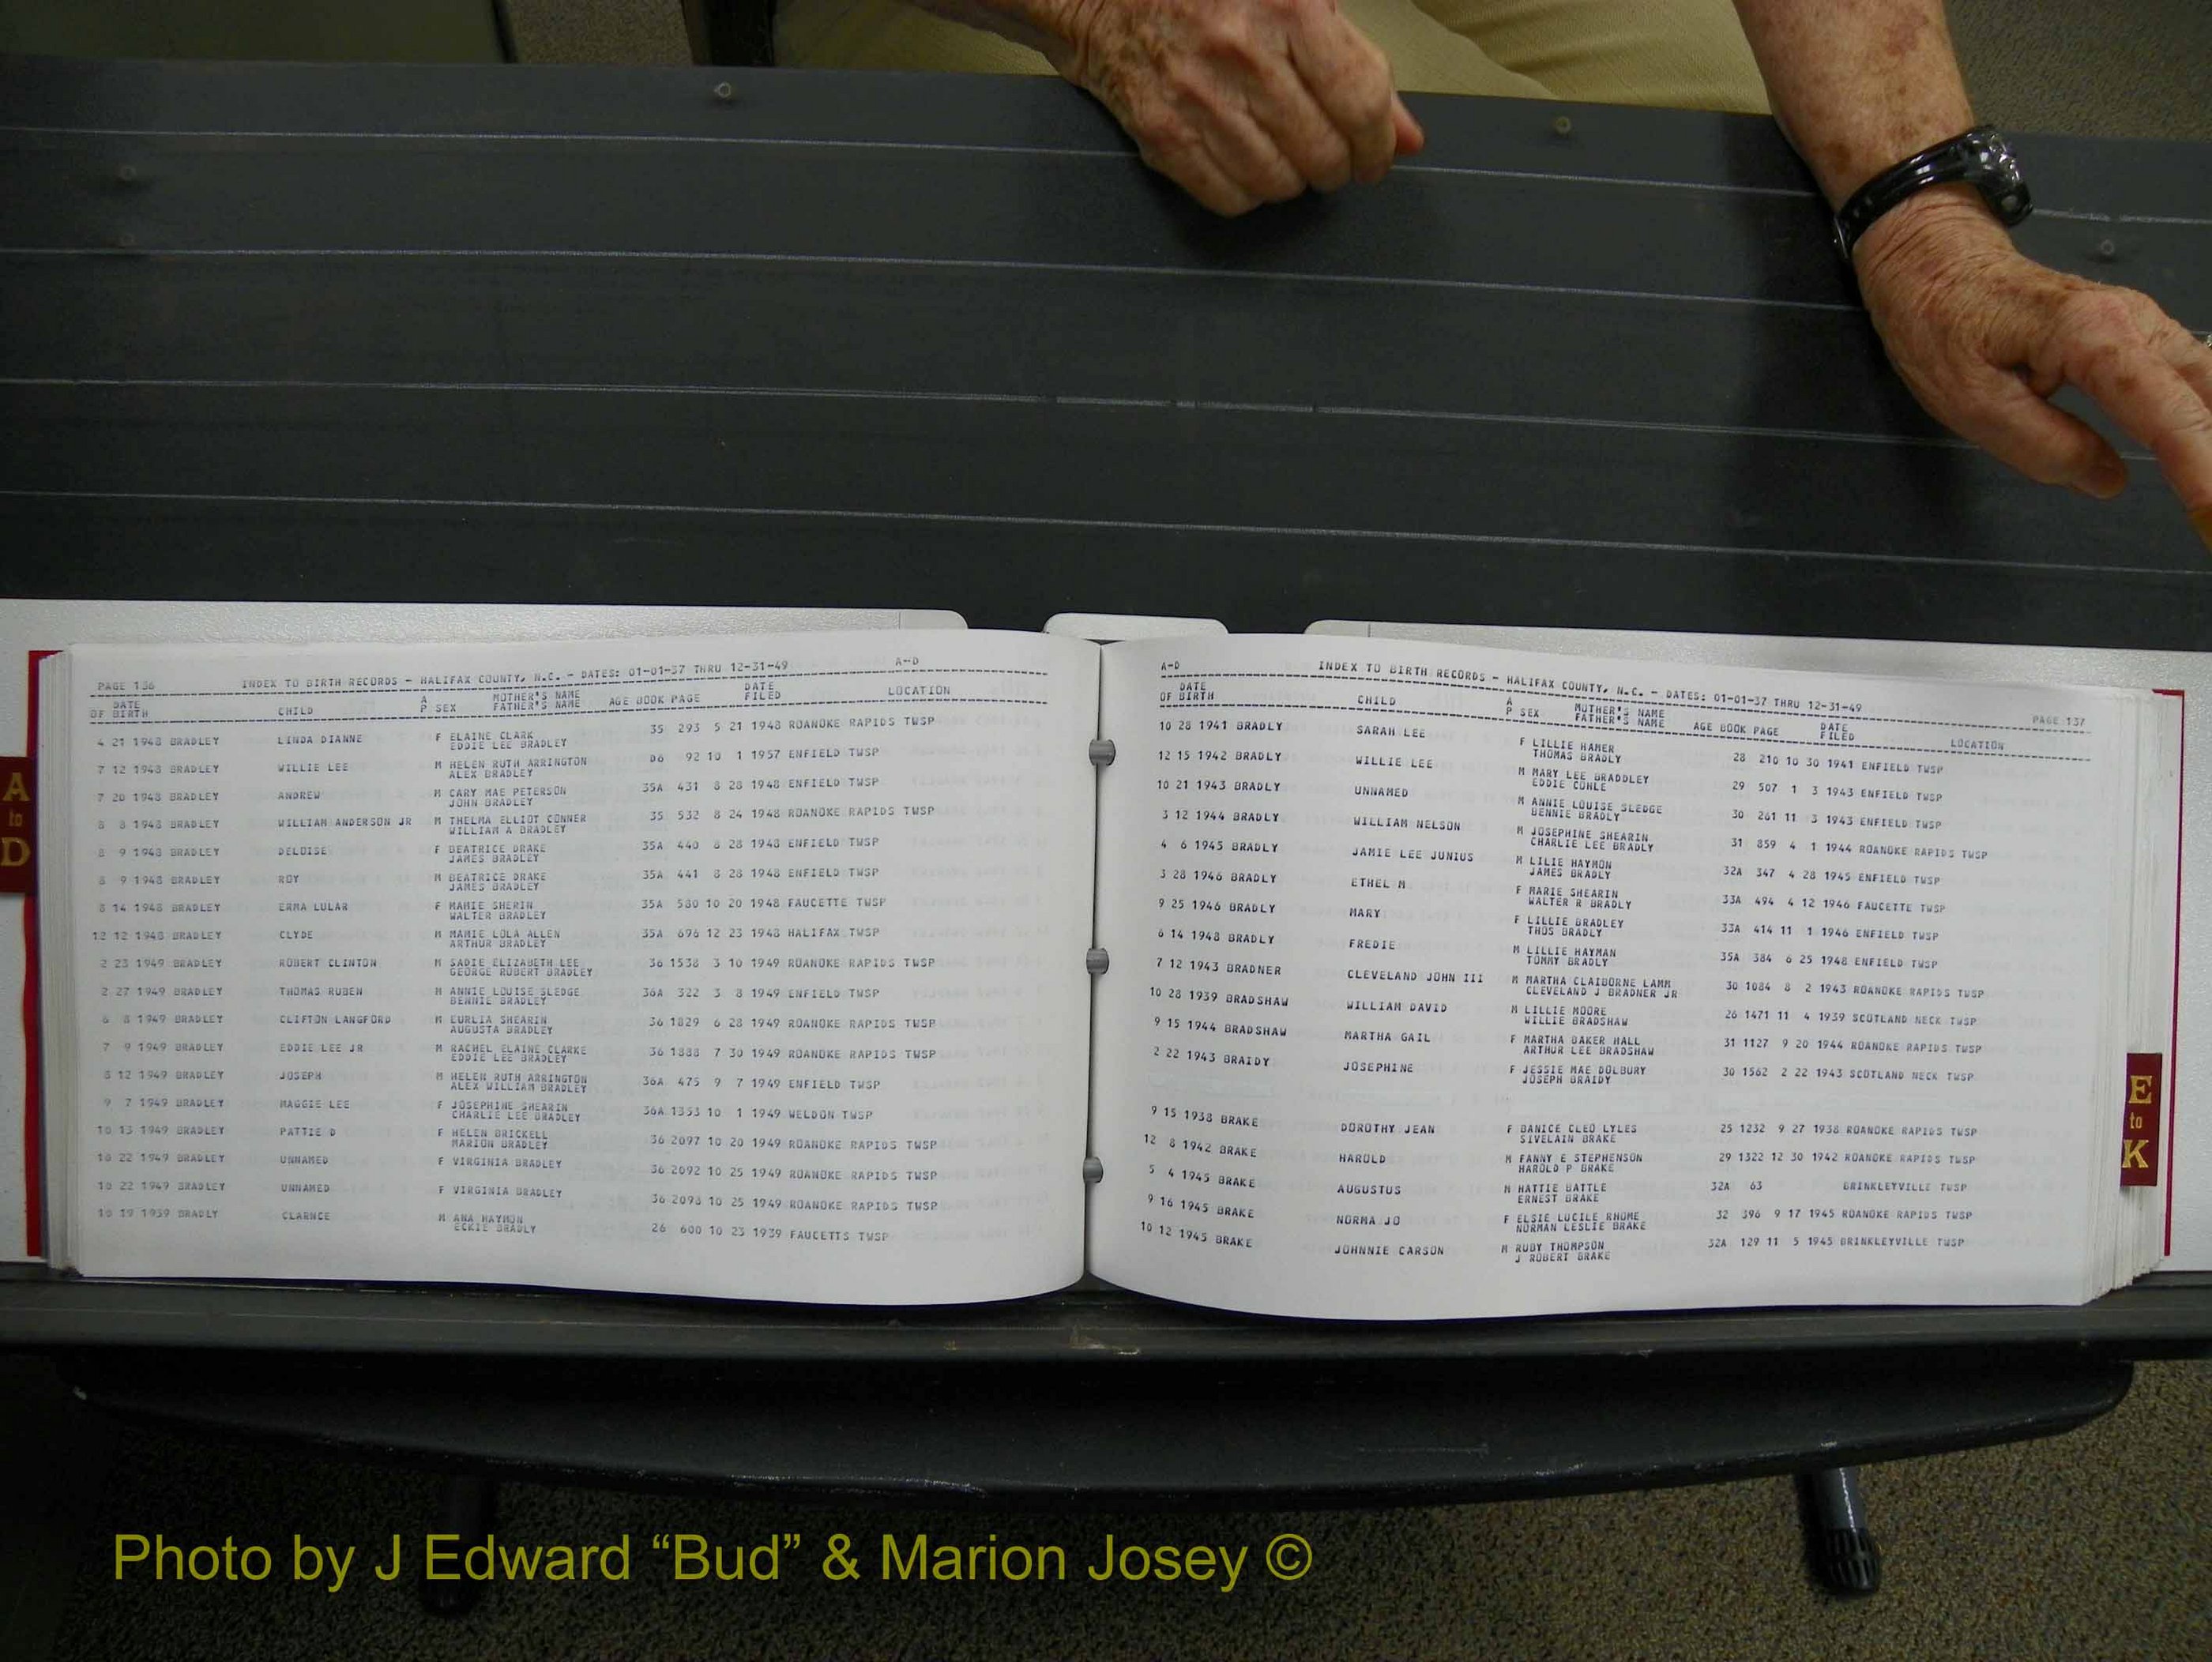 PAGE 136 INDEX TO BIRTH RECORDS - HALIFAX COUNTY, N.C. - DATES: 01-01-37 THRU 12-31-49 A-D
DATE A MOTHER'S NAME DATE
OF BIRTH CHILD P SEX FATHER'S NAME AGE BOOK PAGE FILED LOCATION
4 21 1948 BRADLEY LINDA DIANNE F ELAINE CLARK 35 293 5 21 1948 ROANOKE RAPIDS TWSP
EDDIE LEE BRADLEY
7 12 1948 BRADLEY WILLIE LEE M HELEN RUTH ARRINGTON D6 92 10 1 1957 ENFIELD TWSP
ALEX BRADLEY
7 20 1948 BRADLEY ANDREW M CARY MAE PETERSON 35A 431 8 28 1948 ENFIELD TWSP
JOHN BRADLEY
8 8 1948 BRADLEY WILLIAM ANDERSON JR M THELMA ELLIOT CONNER 35 532 8 24 1948 ROANOKE RAPIDS TWSP
WILLIAM A BRADLEY
8 9 1948 BRADLEY DELOISE F BEATRICE DRAKE 35A 440 8 28 1948 ENFIELD TWSP
JAMES BRADLEY
8 9 1948 BRADLEY ROY M BEATRICE DRAKE 35A 441 8 28 1948 ENFIELD TWSP
JAMES BRADLEY
8 14 1948 BRADLEY ERMA LULAR F MAMIE SHERIN 35A 580 10 20 1948 FAUCETTE TWSP
WALTER BRADLEY
12 12 1948 BRADLEY CLYDE M MAMIE LOLA ALLEN 35A 696 12 23 1948 HALIFAX TWSP
ARTHUR BRADLEY
2 23 1949 BRADLEY ROBERT CLINTON M SADIE ELIZABETH LEE 36 1538 3 10 1949 ROANOKE RAPIDS TWSP
GEORGE ROBERT BRADLEY
2 27 1949 BRADLEY THOMAS RUBEN M ANNIE LOUISE SLEDGE 36A 322 3 8 1949 ENFIELD TWSP
BENNIE BRADLEY
6 8 1949 BRADLEY CLIFTON LANGFORD M EURLIA SHEARIN 36 1829 6 28 1949 ROANOKE RAPIDS TWSP
AUGUSTA BRADLEY
7 9 1949 BRADLEY EDDIE LEE JR M RACHEL ELAINE CLARKE 36 1888 7 30 1949 ROANOKE RAPIDS TWSP
EDDIE LEE BRADLEY
8 12 1949 BRADLEY JOSEPH M HELEN RUTH ARRINGTON 36A 475 9 7 1949 ENFIELD TWSP
ALEX WILLIAM BRADLEY
9 7 1949 BRADLEY MAGGIE LEE F JOSEPHINE SHEARIN 36A 1353 10 1 1949 WELDON TWSP
CHARLIE LEE BRADLEY
10 13 1949 BRADLEY PATTIE D F HELEN BRICKELL 36 2097 10 20 1949 ROANOKE RAPIDS TWSP
MARION BRADLEY
10 22 1949 BRADLEY UNNAMED F VIRGINIA BRADLEY 36 2092 10 25 1949 ROANOKE RAPIDS TWSP
10 22 1949 BRADLEY UNNAMED F VIRGINIA BRADLEY 36 2093 10 25 1949 ROANOKE RAPIDS TWSP
10 19 1939 BRADLY CLARNCE M ANA HAYMON 26 600 10 23 1939 FAUCETTS TWSP
ECKIE BRADLY
A-D INDEX TO BIRTH RECORDS - HALIFAX COUNTY, N.C. - DATES: 01-01-37 THRU 12-31-49 PAGE 137
DATE A MOTHER'S NAME DATE
OF BIRTH CHILD P SEX FATHER'S NAME AGE BOOK PAGE FILED LOCATION
10 28 1941 BRADLY SARAH LEE F LILLIE HAMER 28 210 10 30 1941 ENFIELD TWSP
THOMAS BRADLY
12 15 1942 BRADLY WILLIE LEE M MARY LEE BRADDLEY 29 507 1 3 1943 ENFIELD TWSP
EDDIE COHLE
10 21 1943 BRADLY UNNAMED M ANNIE LOUISE SLEDGE 30 261 11 3 1943 ENFIELD TWSP
BENNIE BRADLY
3 12 1944 BRADLY WILLIAM NELSON M JOSEPHINE SHEARIN 31 859 4 1 1944 ROANOKE RAPIDS TWSP
CHARLIE LEE BRADLY
4 6 1945 BRADLY JAMIE LEE JUNIUS M LILIE HAYMON 32A 347 4 28 1945 ENFIELD TWSP
JAMES BRADLY
3 28 1946 BRADLY ETHEL M F MARIE SHEARIN 33A 494 4 12 1946 FAUCETTE TWSP
WALTER R BRADLY
9 25 1946 BRADLY MARY F LILLIE BRADLEY 33A 414 11 1 1946 ENFIELD TWSP
THOS BRADLY
6 14 1948 BRADLY FREDIE M LILLIE HAYMAN 35A 384 6 25 1948 ENFIELD TWSP
TOMMY BRADLY
7 12 1943 BRADNER CLEVELAND JOHN III M MARTHA CLAIBORNE LAMM 30 1084 8 2 1943 ROANOKE RAPIDS TWSP
CLEVELAND J BRADNER JR
10 28 1939 BRADSHAW WILLIAM DAVID M LILLIE MOORE 26 1471 11 4 1939 SCOTLAND NECK TWSP
WILLIE BRADSHAW
9 15 1944 BRADSHAW MARTHA GAIL F MARTHA BAKER HALL 31 1127 9 20 1944 ROANOKE RAPIDS TWSP
ARTHUR LEE BRADSHAW
2 22 1943 BRAIDY JOSEPHINE F JESSIE MAE DOLBURY 30 1562 2 22 1943 SCOTLAND NECK TWSP
JOSEPH BRAIDY
9 15 1938 BRAKE DOROTHY JEAN F BANICE CLEO LYLES 25 1232 9 27 1938 ROANOKE RAPIDS TWSP
SIVELAIN BRAKE
12 8 1942 BRAKE HAROLD M FANNY E STEPHENSON 29 1322 12 30 1942 ROANOKE RAPIDS TWSP
HAROLD P BRAKE
5 4 1945 BRAKE AUGUSTUS M HATTIE BATTLE 32A 63 BRINKLEYVILLE TWSP
ERNEST BRAKE
9 16 1945 BRAKE NORMA JO F ELSIE LUCILE RHOME 32 396 9 17 1945 ROANOKE RAPIDS TWSP
NORMAN LESLIE BRAKE
10 12 1945 BRAKE JOHNNIE CARSON M RUBY THOMPSON 32A 129 11 5 1945 BRINKLEYVILLE TWSP
J ROBERT BRAKE
A
to
D
E
to
K
Photo by J Edward “Bud” & Marion Josey ©